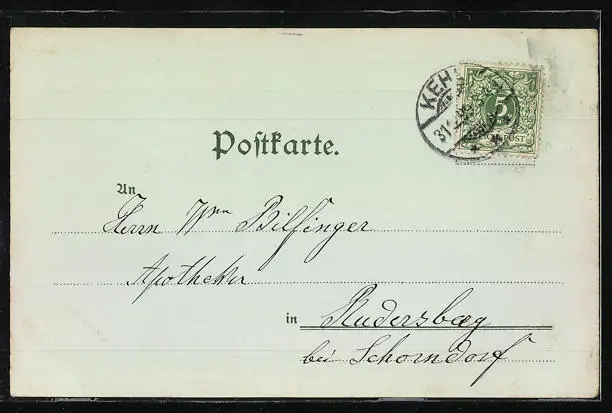 KEHL
31
5
POST
Postkarte.
An
Herrn Wm Bilfinger
Apotheker
in Rudersberg
bei Schorndorf